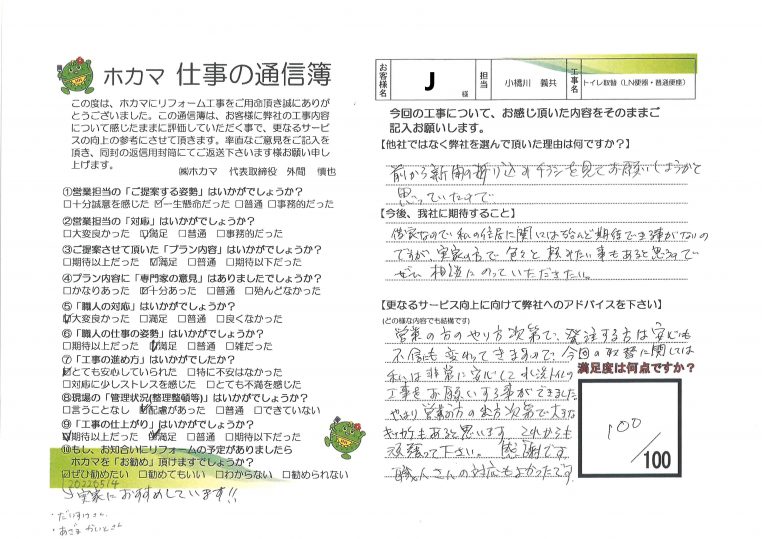 ホカマ 仕事の通信簿
この度は、ホカマにリフォーム工事をご用命頂き誠にありが
とうございました。この通信簿は、お客様に弊社の工事内容
について感じたままに評価していただく事で、更なるサービス
の向上の参考にさせて頂きます。率直なご意見をご記入を
頂き、同封の返信用封筒にてご返送下さいます様お願い申し
上げます。
㈱ホカマ 代表取締役 外間 慎也
①営業担当の「ご提案する姿勢」はいかがでしょうか?
□十分誠意を感じた ☑一生懸命だった □普通 □事務的だった
②営業担当の「対応」はいかがでしょうか?
□大変良かった ☑満足 □普通 □事務的だった
③ご提案させて頂いた「プラン内容」はいかがでしょうか?
□期待以上だった ☑満足 □普通 □期待以下だった
④プラン内容に「専門家の意見」はありましたでしょうか?
□かなりあった ☑十分あった □普通 □殆んどなかった
⑤「職人の対応」はいかがでしょうか?
☑大変良かった □満足 □普通 □良くなかった
⑥「職人の仕事の姿勢」はいかがでしょうか?
□期待以上だった ☑満足 □普通 □雑だった
⑦「工事の進め方」はいかがでしたか?
☑とても安心していられた □特に不安はなかった
□対応に少しストレスを感じた □とても不満を感じた
⑧現場の「管理状況(整理整頓等)」はいかがでしょうか?
□言うことなし ☑配慮があった □普通 □できていない
⑨「工事の仕上がり」はいかがでしょうか?
☑期待以上だった ☑満足 □普通 □期待以下だった
⑩もし、お知合いにリフォームの予定がありましたら
ホカマを「お勧め」頂けますでしょうか?
☑ぜひ勧めたい □勧めてもいい □わからない □勧められない
20220514
実家におすすめしています!!
お客様名 J 様 担当 小橋川 義共 工事名 トイレ取替(LN便器・普通便座)
今回の工事について、お感じ頂いた内容をそのままご
記入お願いします。
【他社ではなく弊社を選んで頂いた理由は何ですか?】
前から新聞の折り込みチラシを見てお願いしようかと
思っていたので
【今後、我社に期待すること】
借家なので私の住居に関しては殆んど期待できる事がないの
ですが、実家の方で色々と頼みたい事もあると思うので
ぜひ相談にのっていただきたい。
【更なるサービス向上に向けて弊社へのアドバイスを下さい】
(どの様な内容でも結構です)
営業の方のやり方次第で、発注する方は安心も
不信も変わってきますので、今回の取替に関しては
私には非常に安心して水洗トイレの
工事をお願いする事ができました。
やはり営業の方の出方次第で大きな
頑張って下さい。 感謝です。
職人さんの対応もよかったです。
満足度は何点ですか?
100/100